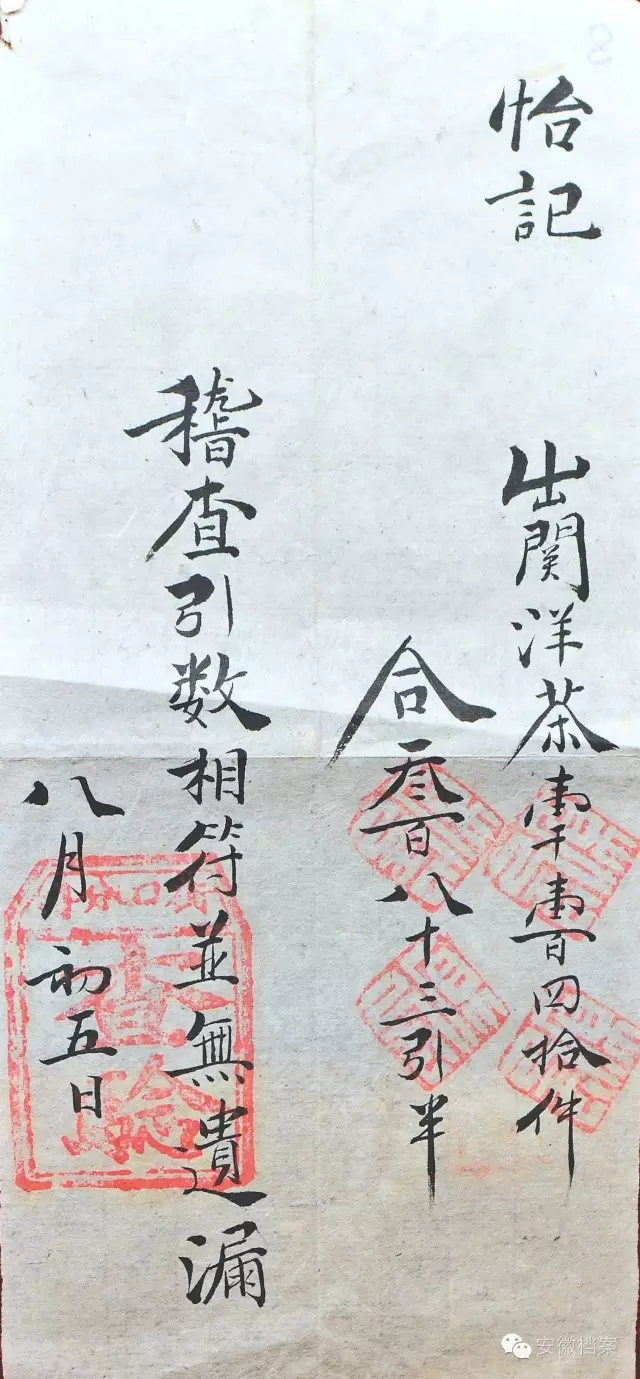 怡記
出関洋茶壹千壹百四拾件
合叁百八十三引半
稽查引数相符並無遺漏
八月初五日
查驗
安徽档案